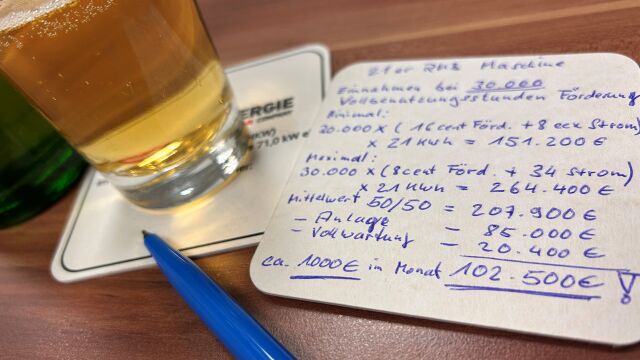 ERGIE
COMPANY
(KW)
71,0 kw e
21er 2HB Maschine
Einnahmen bei 30.000
Vollbenutzungsstunden Förderung
Minimal:
30.000 x (16 cent Förd. + 8 eex Strom)
x 21 kWh = 151.200 €
Maximal:
30.000 x (8 cent Förd. + 34 Strom)
x 21 kWh = 264.400 €
Mittelwert 50/50 = 207.900 €
- Anlage - 85.000 €
- Vollwartung - 20.400 €
ca. 1000 € im Monat 102.500 €